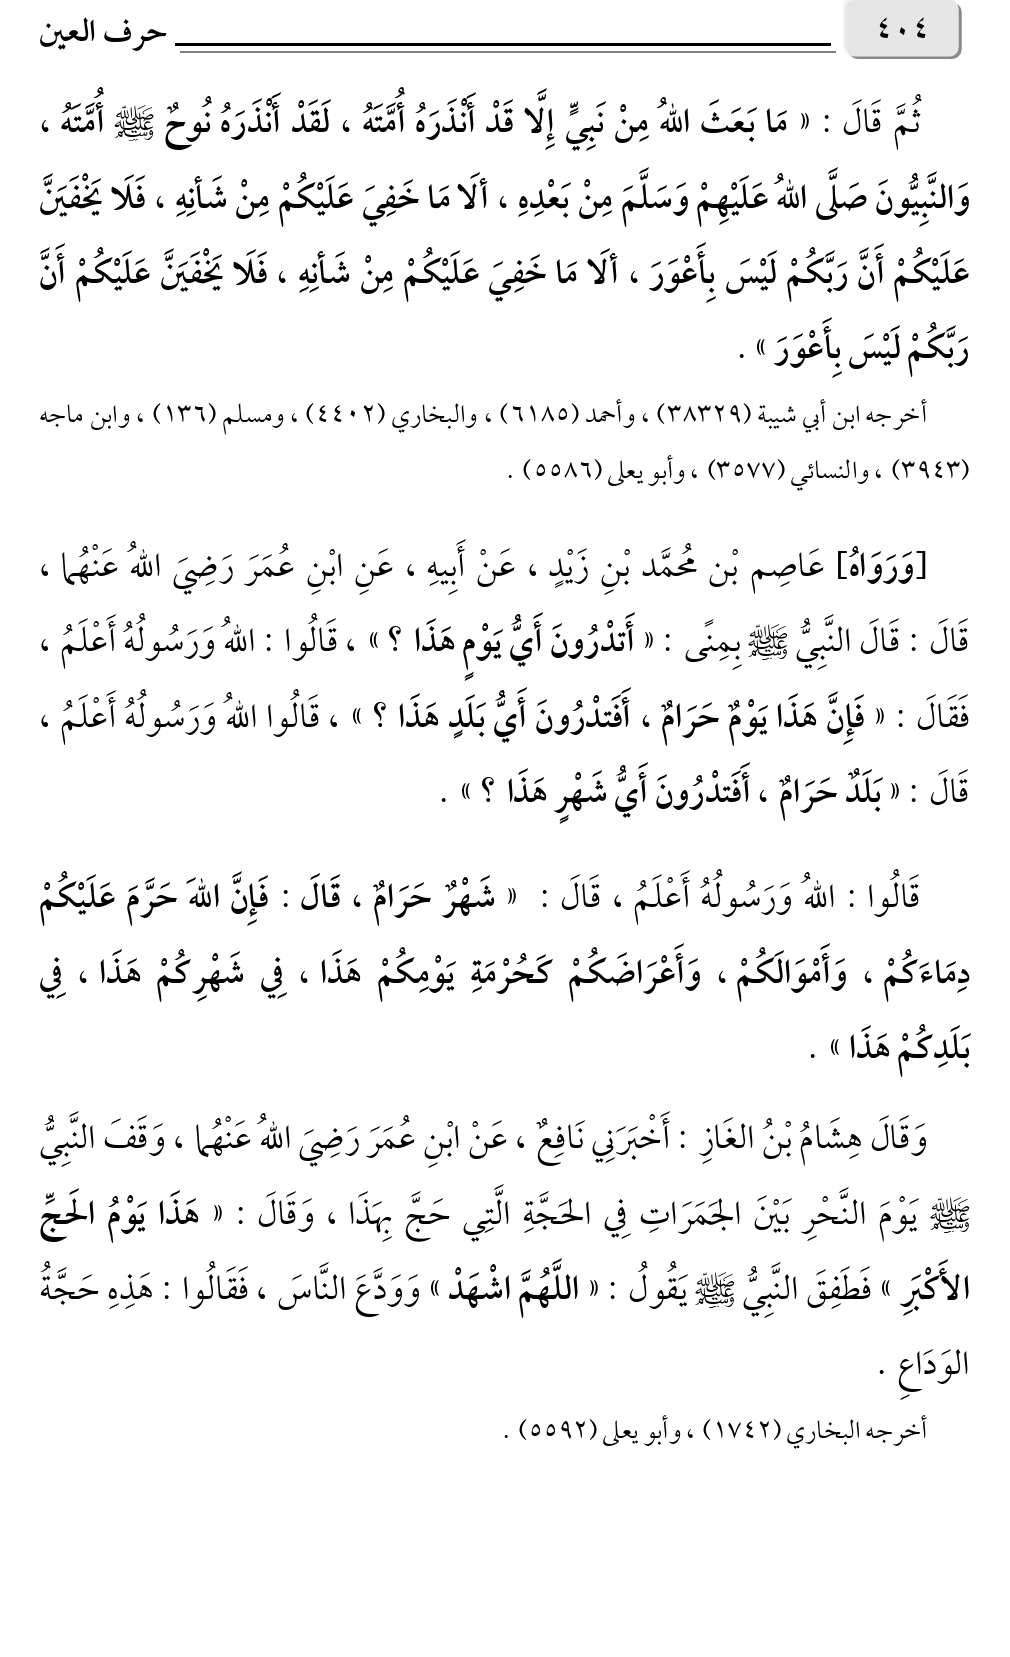 ٤٠٤ حرف العين
ثُمَّ قَالَ : « مَا بَعَثَ اللهُ مِنْ نَبِيٍّ إِلَّا قَدْ أَنْذَرَهُ أُمَّتَهُ ، لَقَدْ أَنْذَرَهُ نُوحٌ ﷺ أُمَّتَهُ ،
وَالنَّبِيُّونَ صَلَّى اللهُ عَلَيْهِمْ وَسَلَّمَ مِنْ بَعْدِهِ ، أَلَا مَا خَفِيَ عَلَيْكُمْ مِنْ شَأنِهِ ، فَلَا يَخْفَيَنَّ
عَلَيْكُمْ أَنَّ رَبَّكُمْ لَيْسَ بِأَعْوَرَ ، ألَا مَا خَفِيَ عَلَيْكُمْ مِنْ شَأنِهِ ، فَلَا يَخْفَيَنَّ عَلَيْكُمْ أَنَّ
رَبَّكُمْ لَيْسَ بِأَعْوَرَ » .
أخرجه ابن أبي شيبة (٣٨٣٢٩) ، وأحمد (٦١٨٥) ، والبخاري (٤٤٠٢) ، ومسلم (١٣٦) ، وابن ماجه
(٣٩٤٣) ، والنسائي (٣٥٧٧) ، وأبو يعلى (٥٥٨٦) .
[وَرَوَاهُ] عَاصِم بْن مُحَمَّد بْنِ زَيْدٍ ، عَنْ أَبِيهِ ، عَنِ ابْنِ عُمَرَ رَضِيَ اللهُ عَنْهُما ،
قَالَ : قَالَ النَّبِيُّ ﷺ بِمِنًى : « أَتدْرُونَ أَيُّ يَوْمٍ هَذَا ؟ » ، قَالُوا : اللهُ وَرَسُولُهُ أَعْلَمُ ،
فَقَالَ : « فَإِنَّ هَذَا يَوْمٌ حَرَامٌ ، أَفَتدْرُونَ أَيُّ بَلَدٍ هَذَا ؟ » ، قَالُوا اللهُ وَرَسُولُهُ أَعْلَمُ ،
قَالَ : « بَلَدٌ حَرَامٌ ، أَفَتدْرُونَ أَيُّ شَهْرٍ هَذَا ؟ » .
قَالُوا : اللهُ وَرَسُولُهُ أَعْلَمُ ، قَالَ : « شَهْرٌ حَرَامٌ ، قَالَ : فَإِنَّ اللهَ حَرَّمَ عَلَيْكُمْ
دِمَاءَكُمْ ، وَأَمْوَالَكُمْ ، وَأَعْرَاضَكُمْ كَحُرْمَةِ يَوْمِكُمْ هَذَا ، فِي شَهْرِكُمْ هَذَا ، فِي
بَلَدِكُمْ هَذَا » .
وَقَالَ هِشَامُ بْنُ الغَازِ : أَخْبَرَنِي نَافِعٌ ، عَنْ ابْنِ عُمَرَ رَضِيَ اللهُ عَنْهُما ، وَقَفَ النَّبِيُّ
ﷺ يَوْمَ النَّحْرِ بَيْنَ الجَمَرَاتِ فِي الحَجَّةِ الَّتِي حَجَّ بِهَذَا ، وَقَالَ : « هَذَا يَوْمُ الحَجِّ
الأَكْبَرِ » فَطَفِقَ النَّبِيُّ ﷺ يَقُولُ : « اللَّهُمَّ اشْهَدْ » وَوَدَّعَ النَّاسَ ، فَقَالُوا : هَذِهِ حَجَّةُ
الوَدَاعِ .
أخرجه البخاري (١٧٤٢) ، وأبو يعلى (٥٥٩٢) .